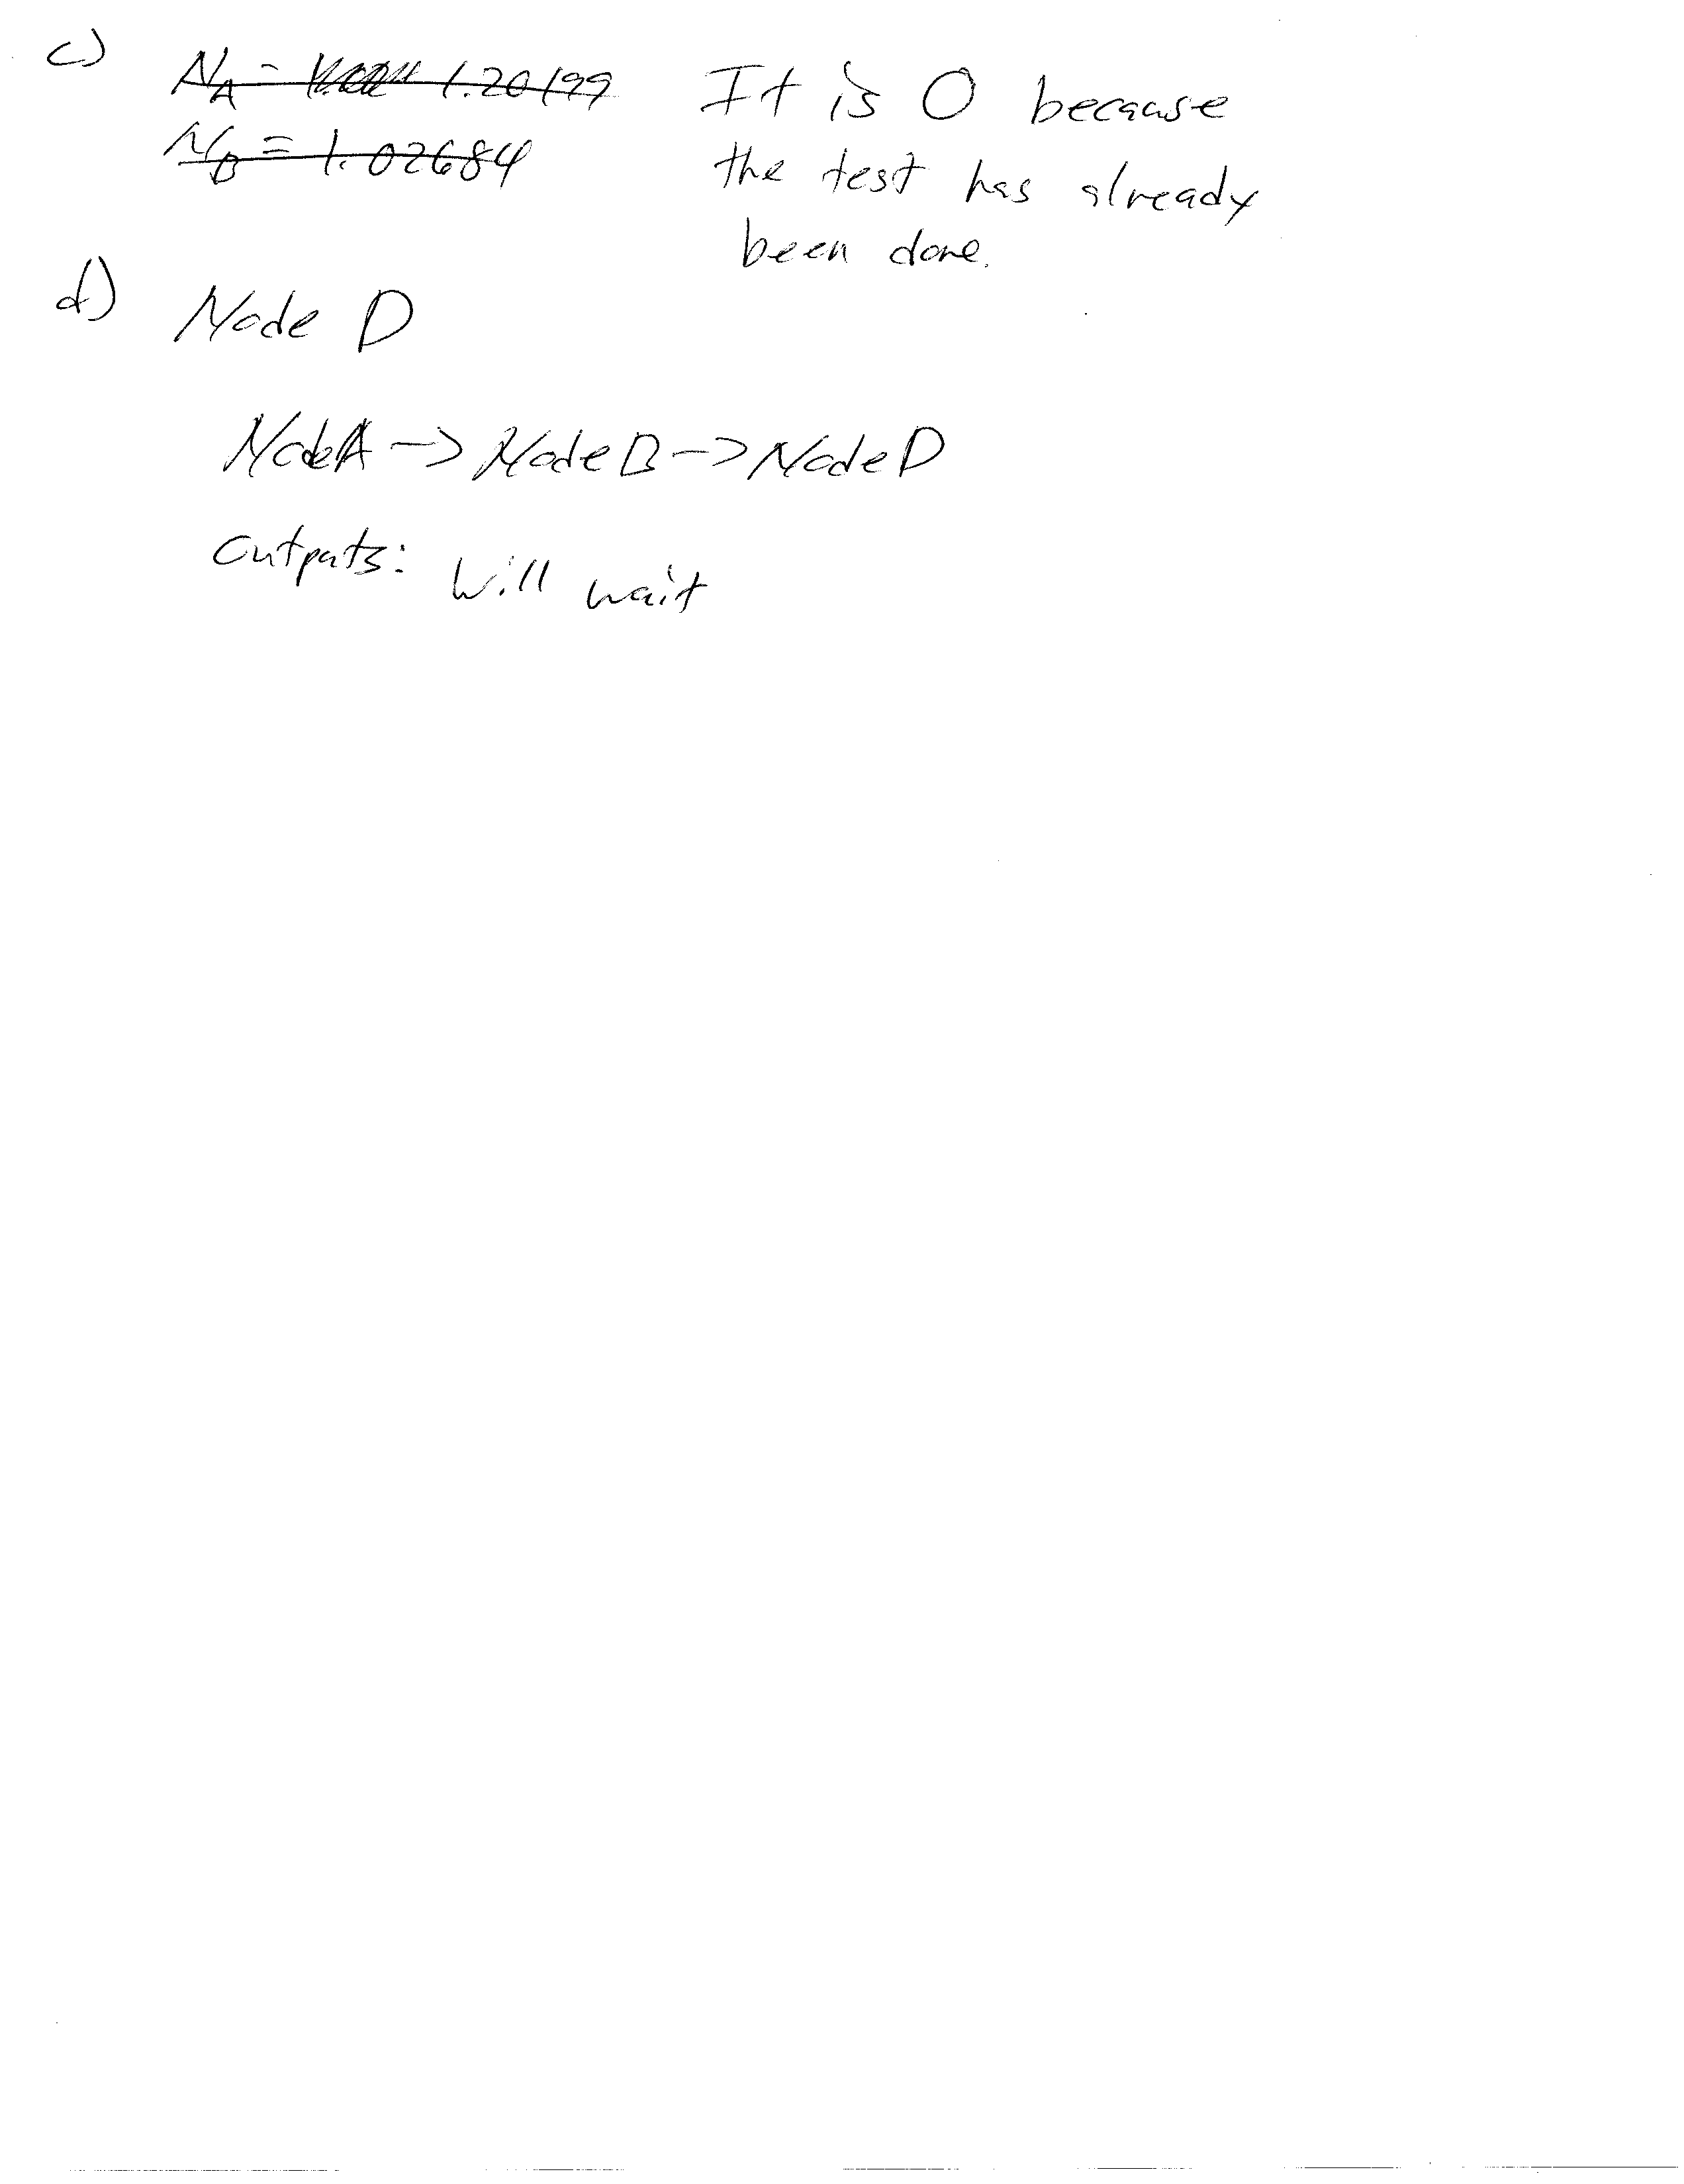 c)
N_A = 1.20199
N_B = 1.02684
It is 0 because
the test has already
been done.
d) Node D
Node A -> Node B -> Node D
Outputs: Will wait